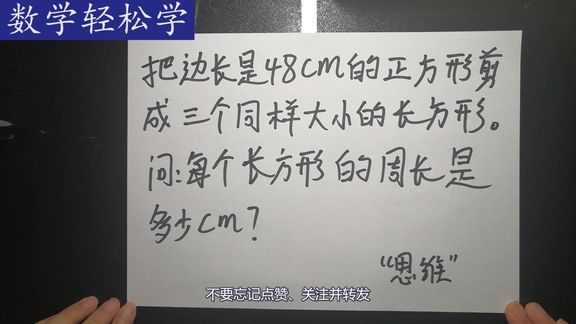 数学轻松学
把边长是48cm的正方形剪
成三个同样大小的长方形。
问:每个长方形的周长是
多少cm?
“思维”
不要忘记点赞、关注并转发